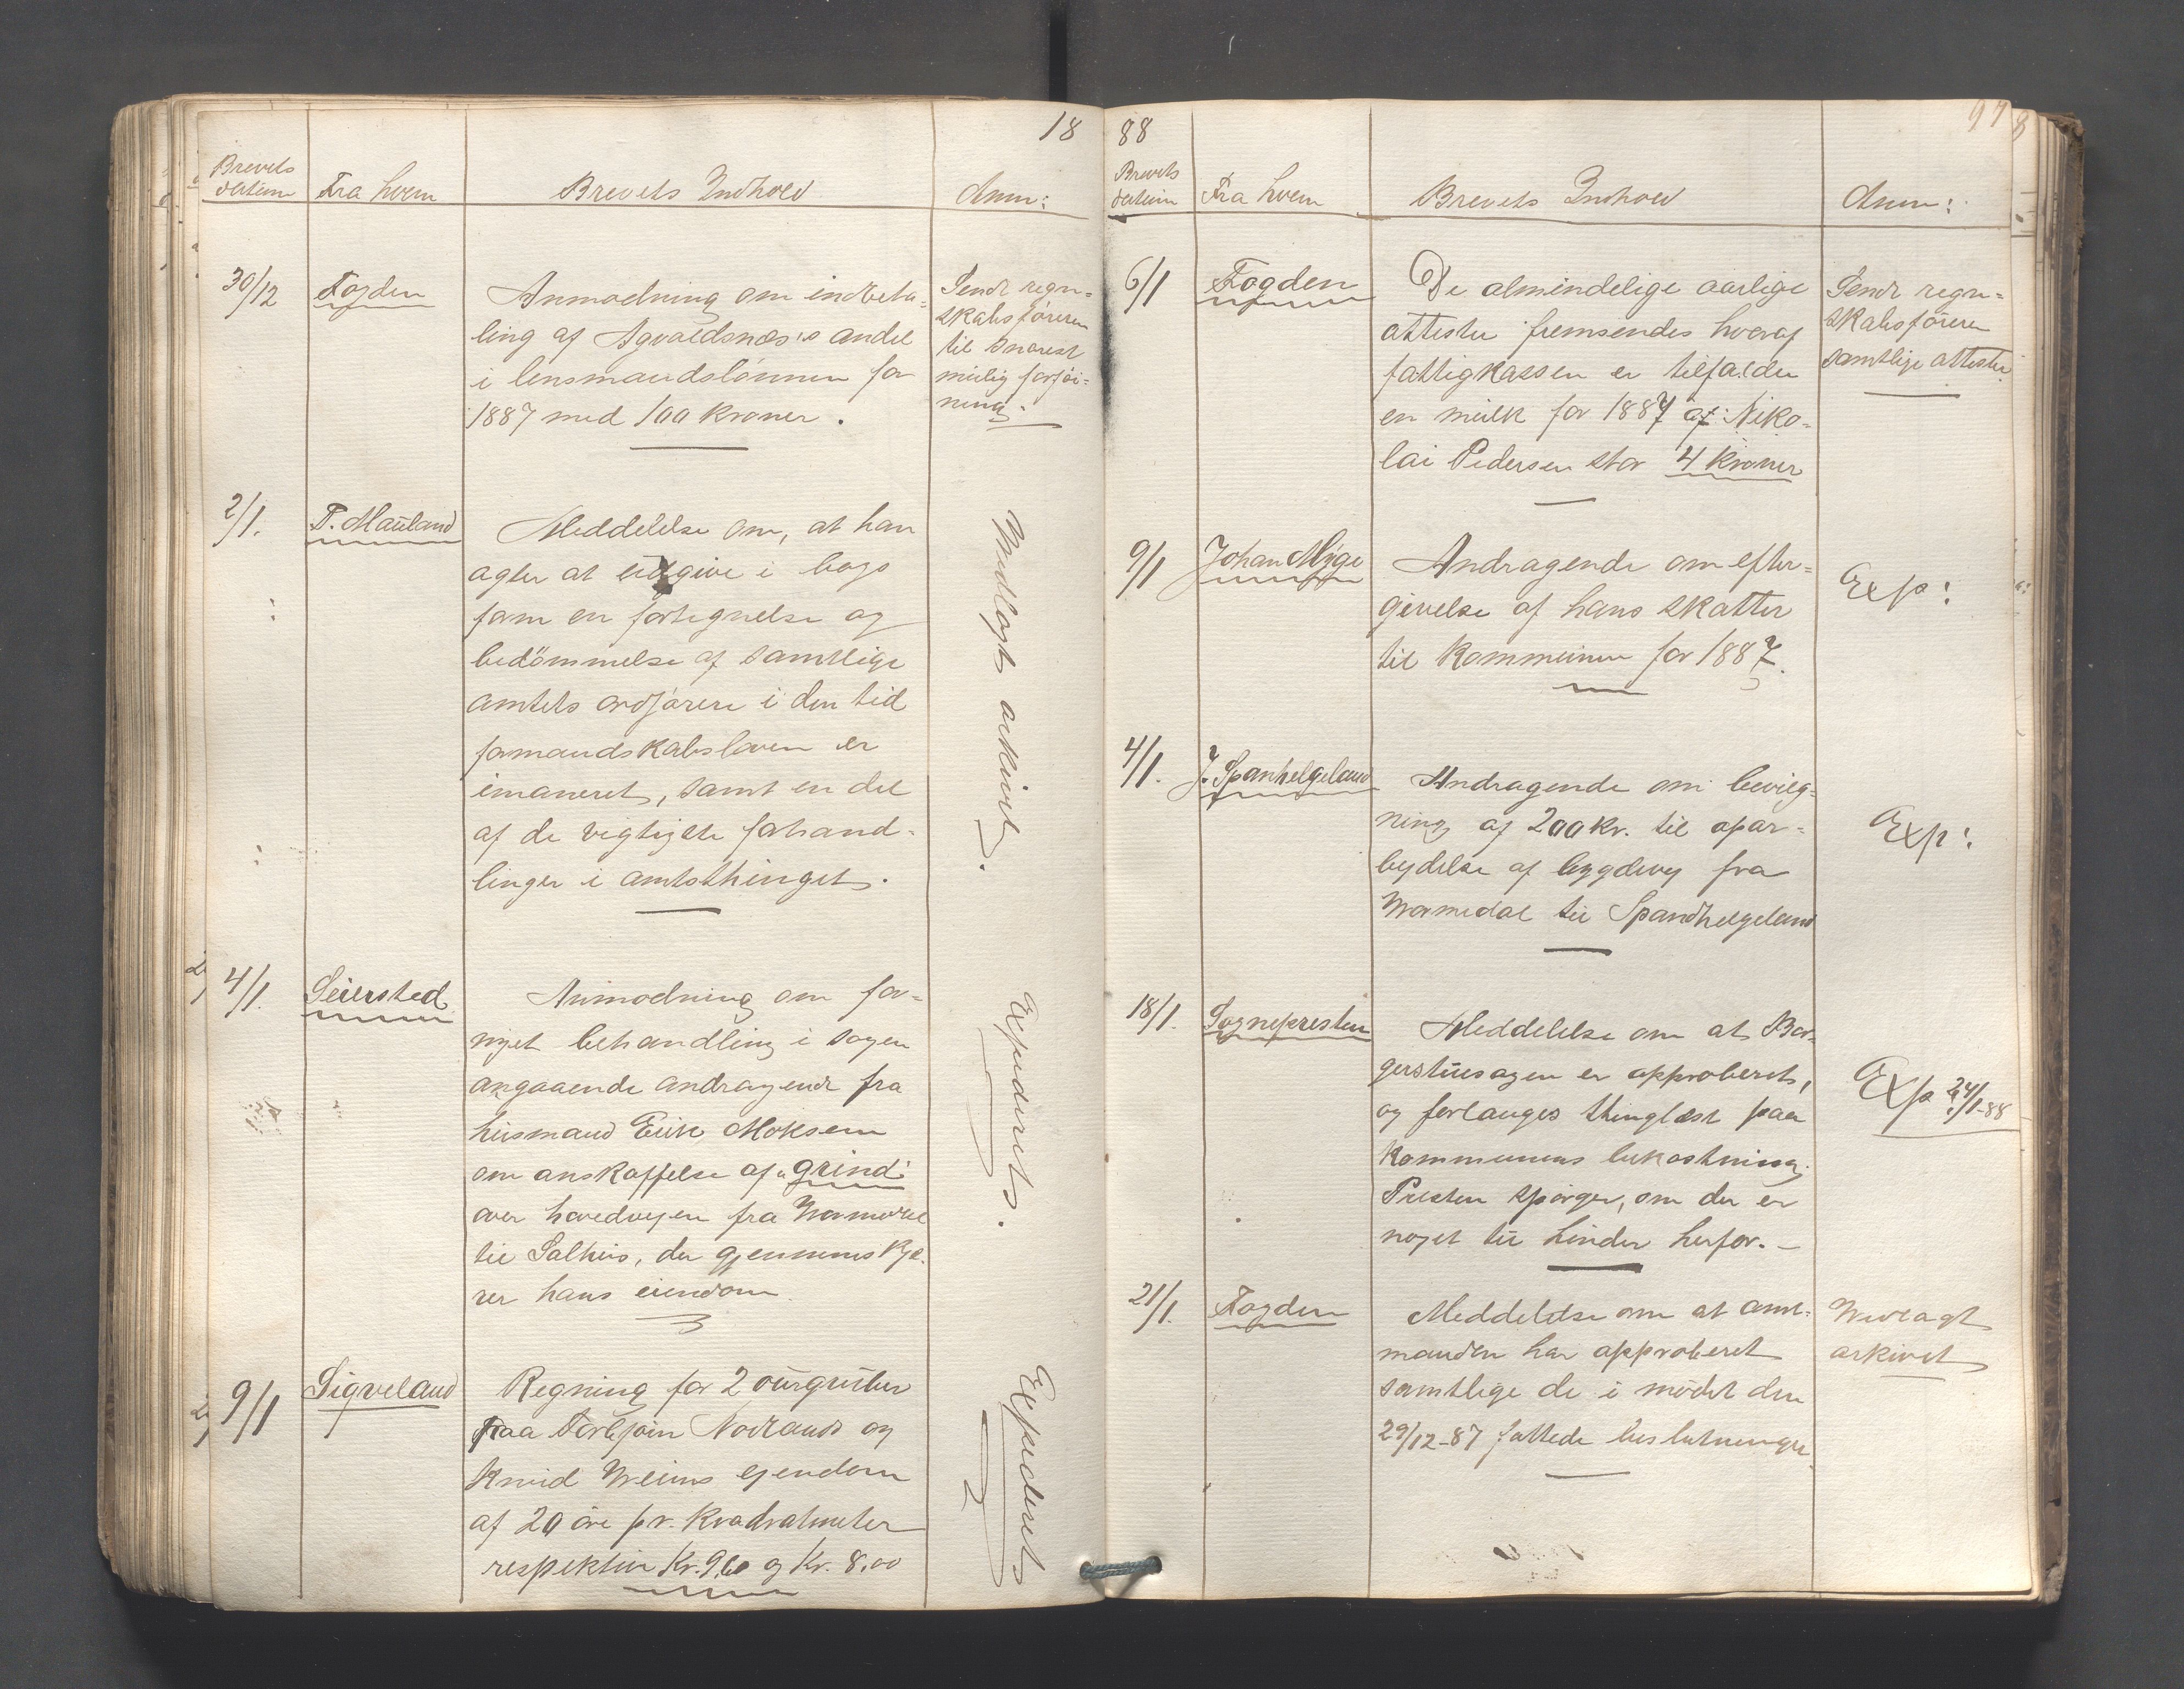 18
Brevets
datum
Fra hvem
Brevets Indhold
Anm:
30/12
Fogden
Anmodning om indbeta-
ling af Agvaldsnæs's andel
i lensmandslönnen for
1887 med 100 kroner.
Sendt regn-
skabsföreren
til snarest
mulig forföi-
ning.
2/1.
T. Mauland
Meddelelse om, at han
agter at udgive i bogs
form en fortegnelse og
bedömmelse af samtlige
amtets ordförere i den tid
formandskabsloven er
imaneret, samt en del
af de vigtigste forhand-
linger i amtsthinget.
Nedlagt arkivet.
4/1.
Seiersted
Anmodning om for-
nyet behandling i sagen
angaaende andragende fra
husmand Erik Moksem
om anskaffelse af "grind"
over hovedveien fra Wormedal
til Salhus, der gjennemskjæ-
rer hans eiendom.
Expederet.
9/1
Sigveland
Regning for 2 ourgutuer
paa Torbjörn Nodlands og
Knud Weims ejendom
af 20 öre pr. kvadratmeter
respektive Kr. 9,60 og Kr. 8,00
Expederet
88
97
8
Brevets
datum
Fra hvem
Brevets Indhold
Anm:
6/1
Fogden
De almindelige aarlige
attester fremsendes hvoraf
fattigkassen er tilfalden
en mulk for 1887 af Niko-
lai Pedersen stor 4 kroner
Sendt regn-
skabsföreren
samtlige attester
9/1
Johan Myge
Andragende om efter-
givelse af hans skatter
til kommunen for 1887.
Exp:
4/1.
J. Spanhelgeland
Andragende om bevilg-
ning af 200 kr. til opar-
beydelse af bygdevej fra
Wormedal til Spandhelgeland
Exp:
18/1.
Sognepresten
Meddelelse om at Bor-
gerstuesagen er approberet,
og forlanges thinglæst paa
kommunens bekostning.
Presten spörger, om der er
noget til hinder herfor. -
Exp: 24/1-88
21/1.
Fogden
Meddelelse om at amt-
manden har approberet
samtlige de i mödet den
29/12-87 fattede beslutninger.
Nedlagt
arkivet